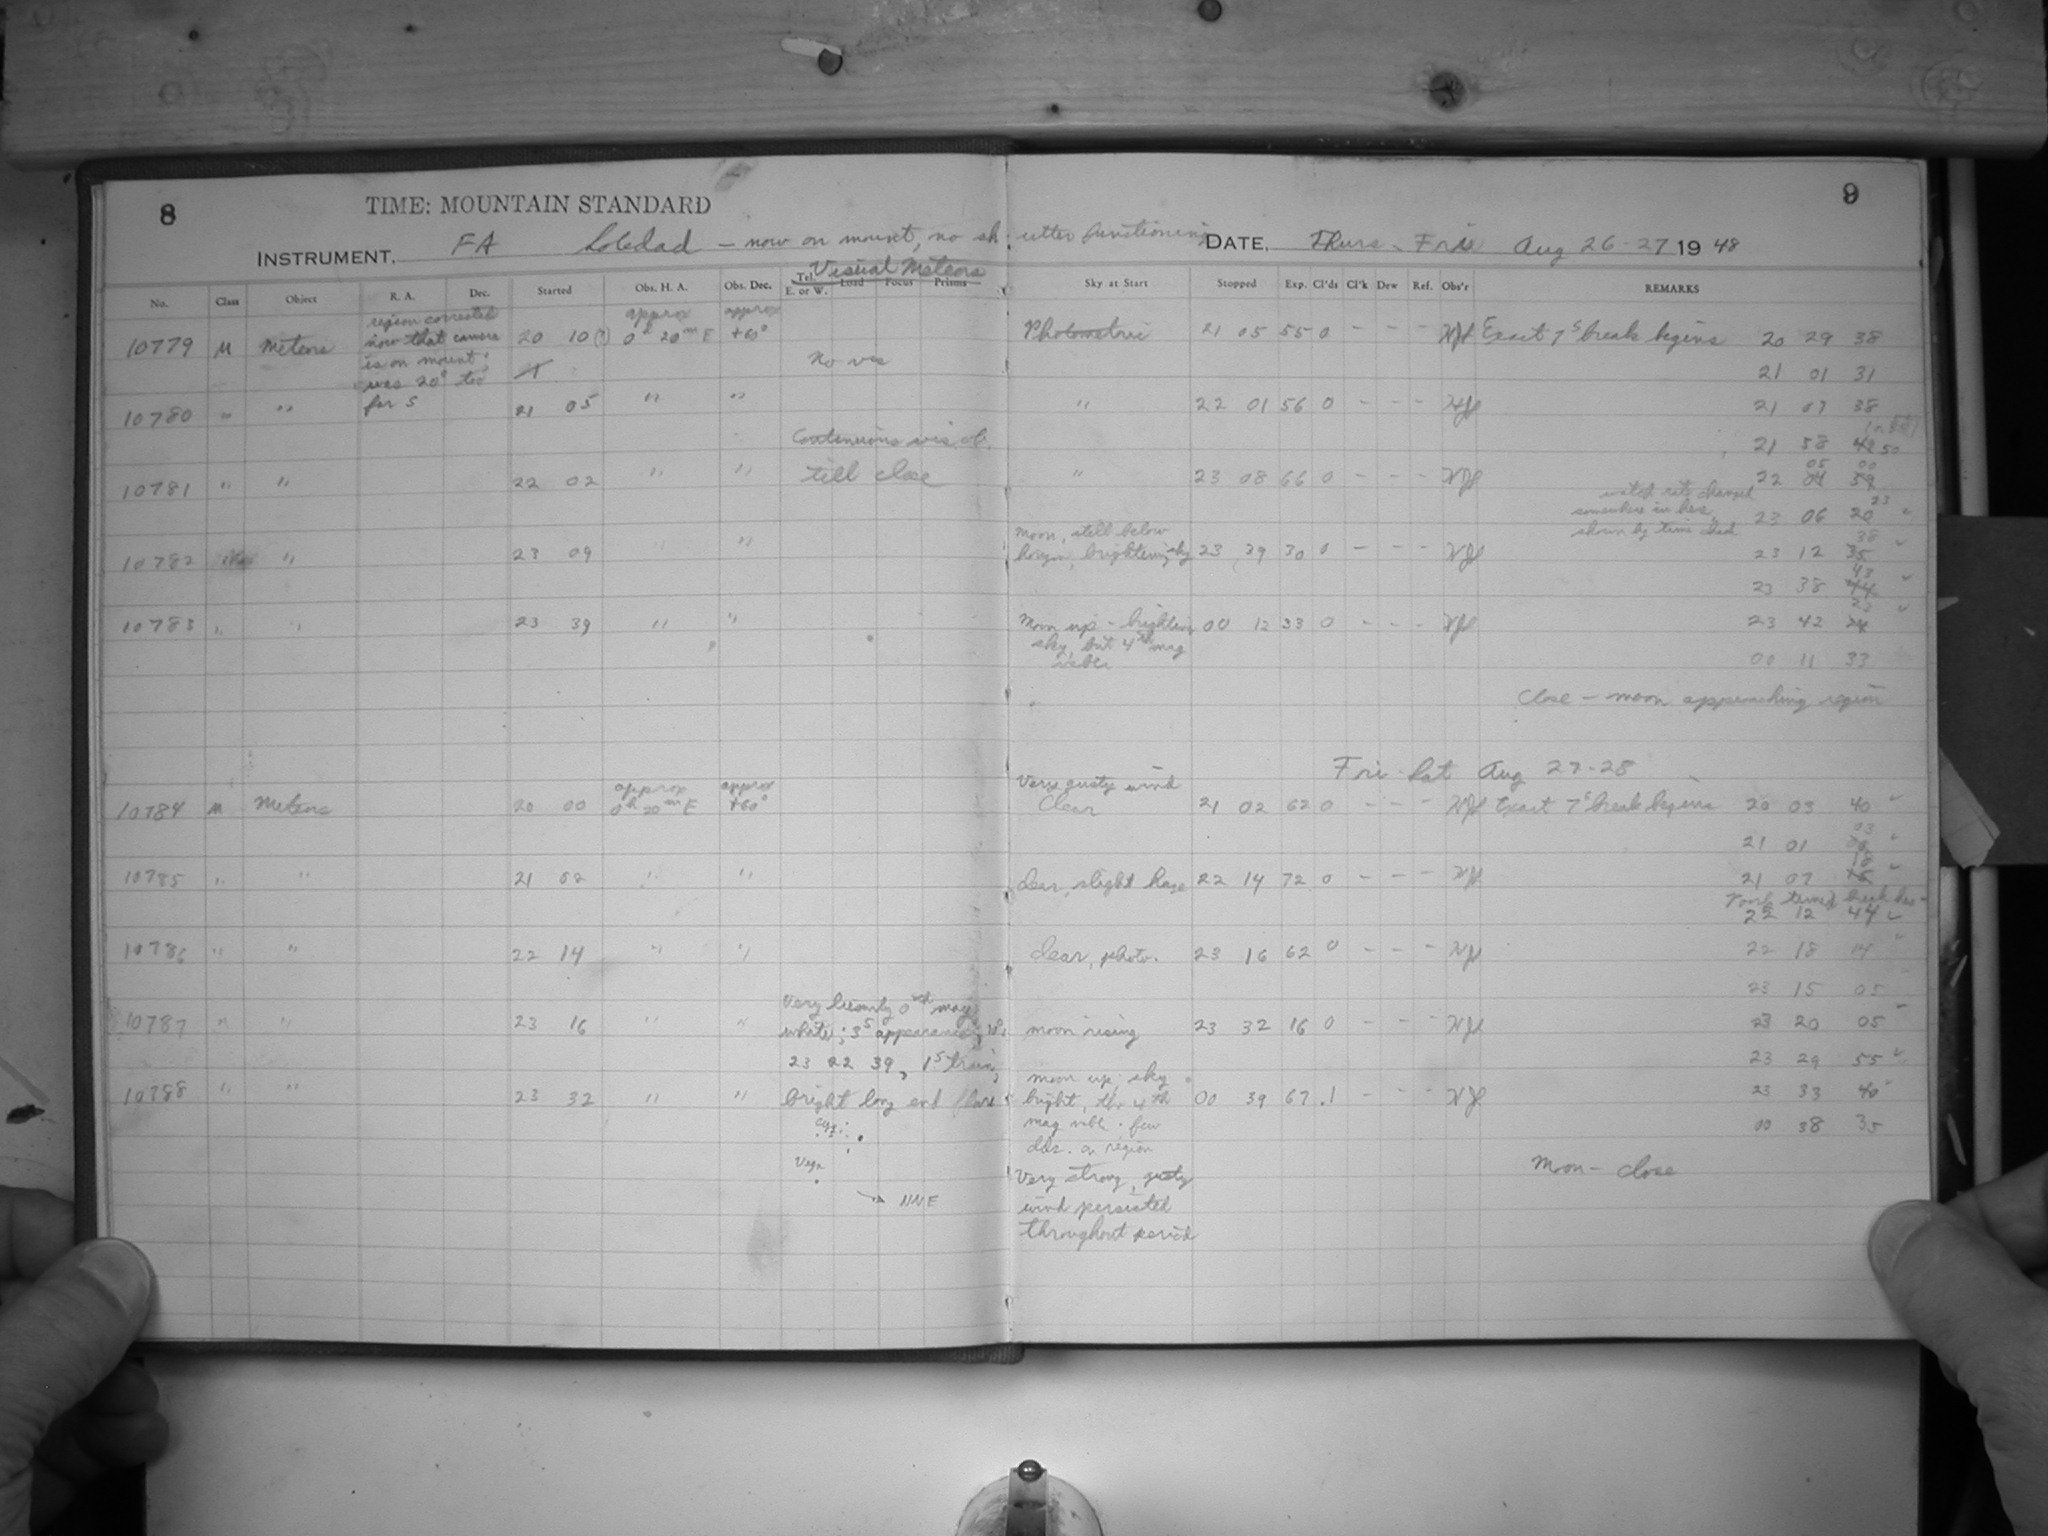 8
9
TIME: MOUNTAIN STANDARD
INSTRUMENT, FA Soledad – now on mount, no shutter functioning DATE, Thurs – Fri Aug 26-27 1948
Visual Meteors
No. Class Object R. A. Dec. Started Obs. H. A. Obs. Dec. Tel. E. or W. Load Focus Prisms Sky at Start Stopped Exp. Cl'ds Cl'k Dew Ref. Obs'r REMARKS
region corrected
now that camera
is on mount;
was 20° too
far S
approx approx
10779 M Meteors 20 10(?) 0h 20m E +60° Photometric 21 05 55 0 - - - Exact 7s break begins 20 29 38
No vis
21 01 31
10780 " " 21 05 " " " 22 01 56 0 - - - 21 07 38
Continuous vis. ob.
21 58 49 50
05 00
10781 " " 22 02 " " till close " 23 08 66 0 - - - 22 04 59
watch rate changed
somewhere in here,
shown by time check
23
23 06 20
Moon, still below
horizon, brightening sky
38
10782 " 23 09 " " 23 39 30 0 - - - 23 12 35
43
23 38 44
23
10783 " " 23 39 " " Moon up – brightening 00 12 33 0 - - - 23 42 24
sky, but 4th mag
visbl.
00 11 33
Close – moon approaching region
Fri - Sat Aug 27-28
approx approx Very gusty wind
10784 M Meteors 20 00 0h 20m E +60° Clear 21 02 62 0 - - - Exact 7s break begins 20 03 40
03
21 01
18
10785 " " 21 02 " " clear, slight haze 22 14 72 0 - - - 21 07
22 12 44
10786 " " 22 14 " " clear, photo. 23 16 62 0 - - - 22 18 14
23 15 05
Very 0th mag
10787 " " 23 16 " " white; 3s appearance; moon rising 23 32 16 0 - - - 23 20 05
23 22 39, 1s train,
23 29 55
moon up; sky
10788 " " 23 32 " " bright long end flare bright, 4th 00 39 67 .1 - - - 23 33 40
Cyg:
mag visbl. few
clds. on region
00 38 35
Vega
NNE
Moon – close
Very strong, gusty
wind persisted
throughout period